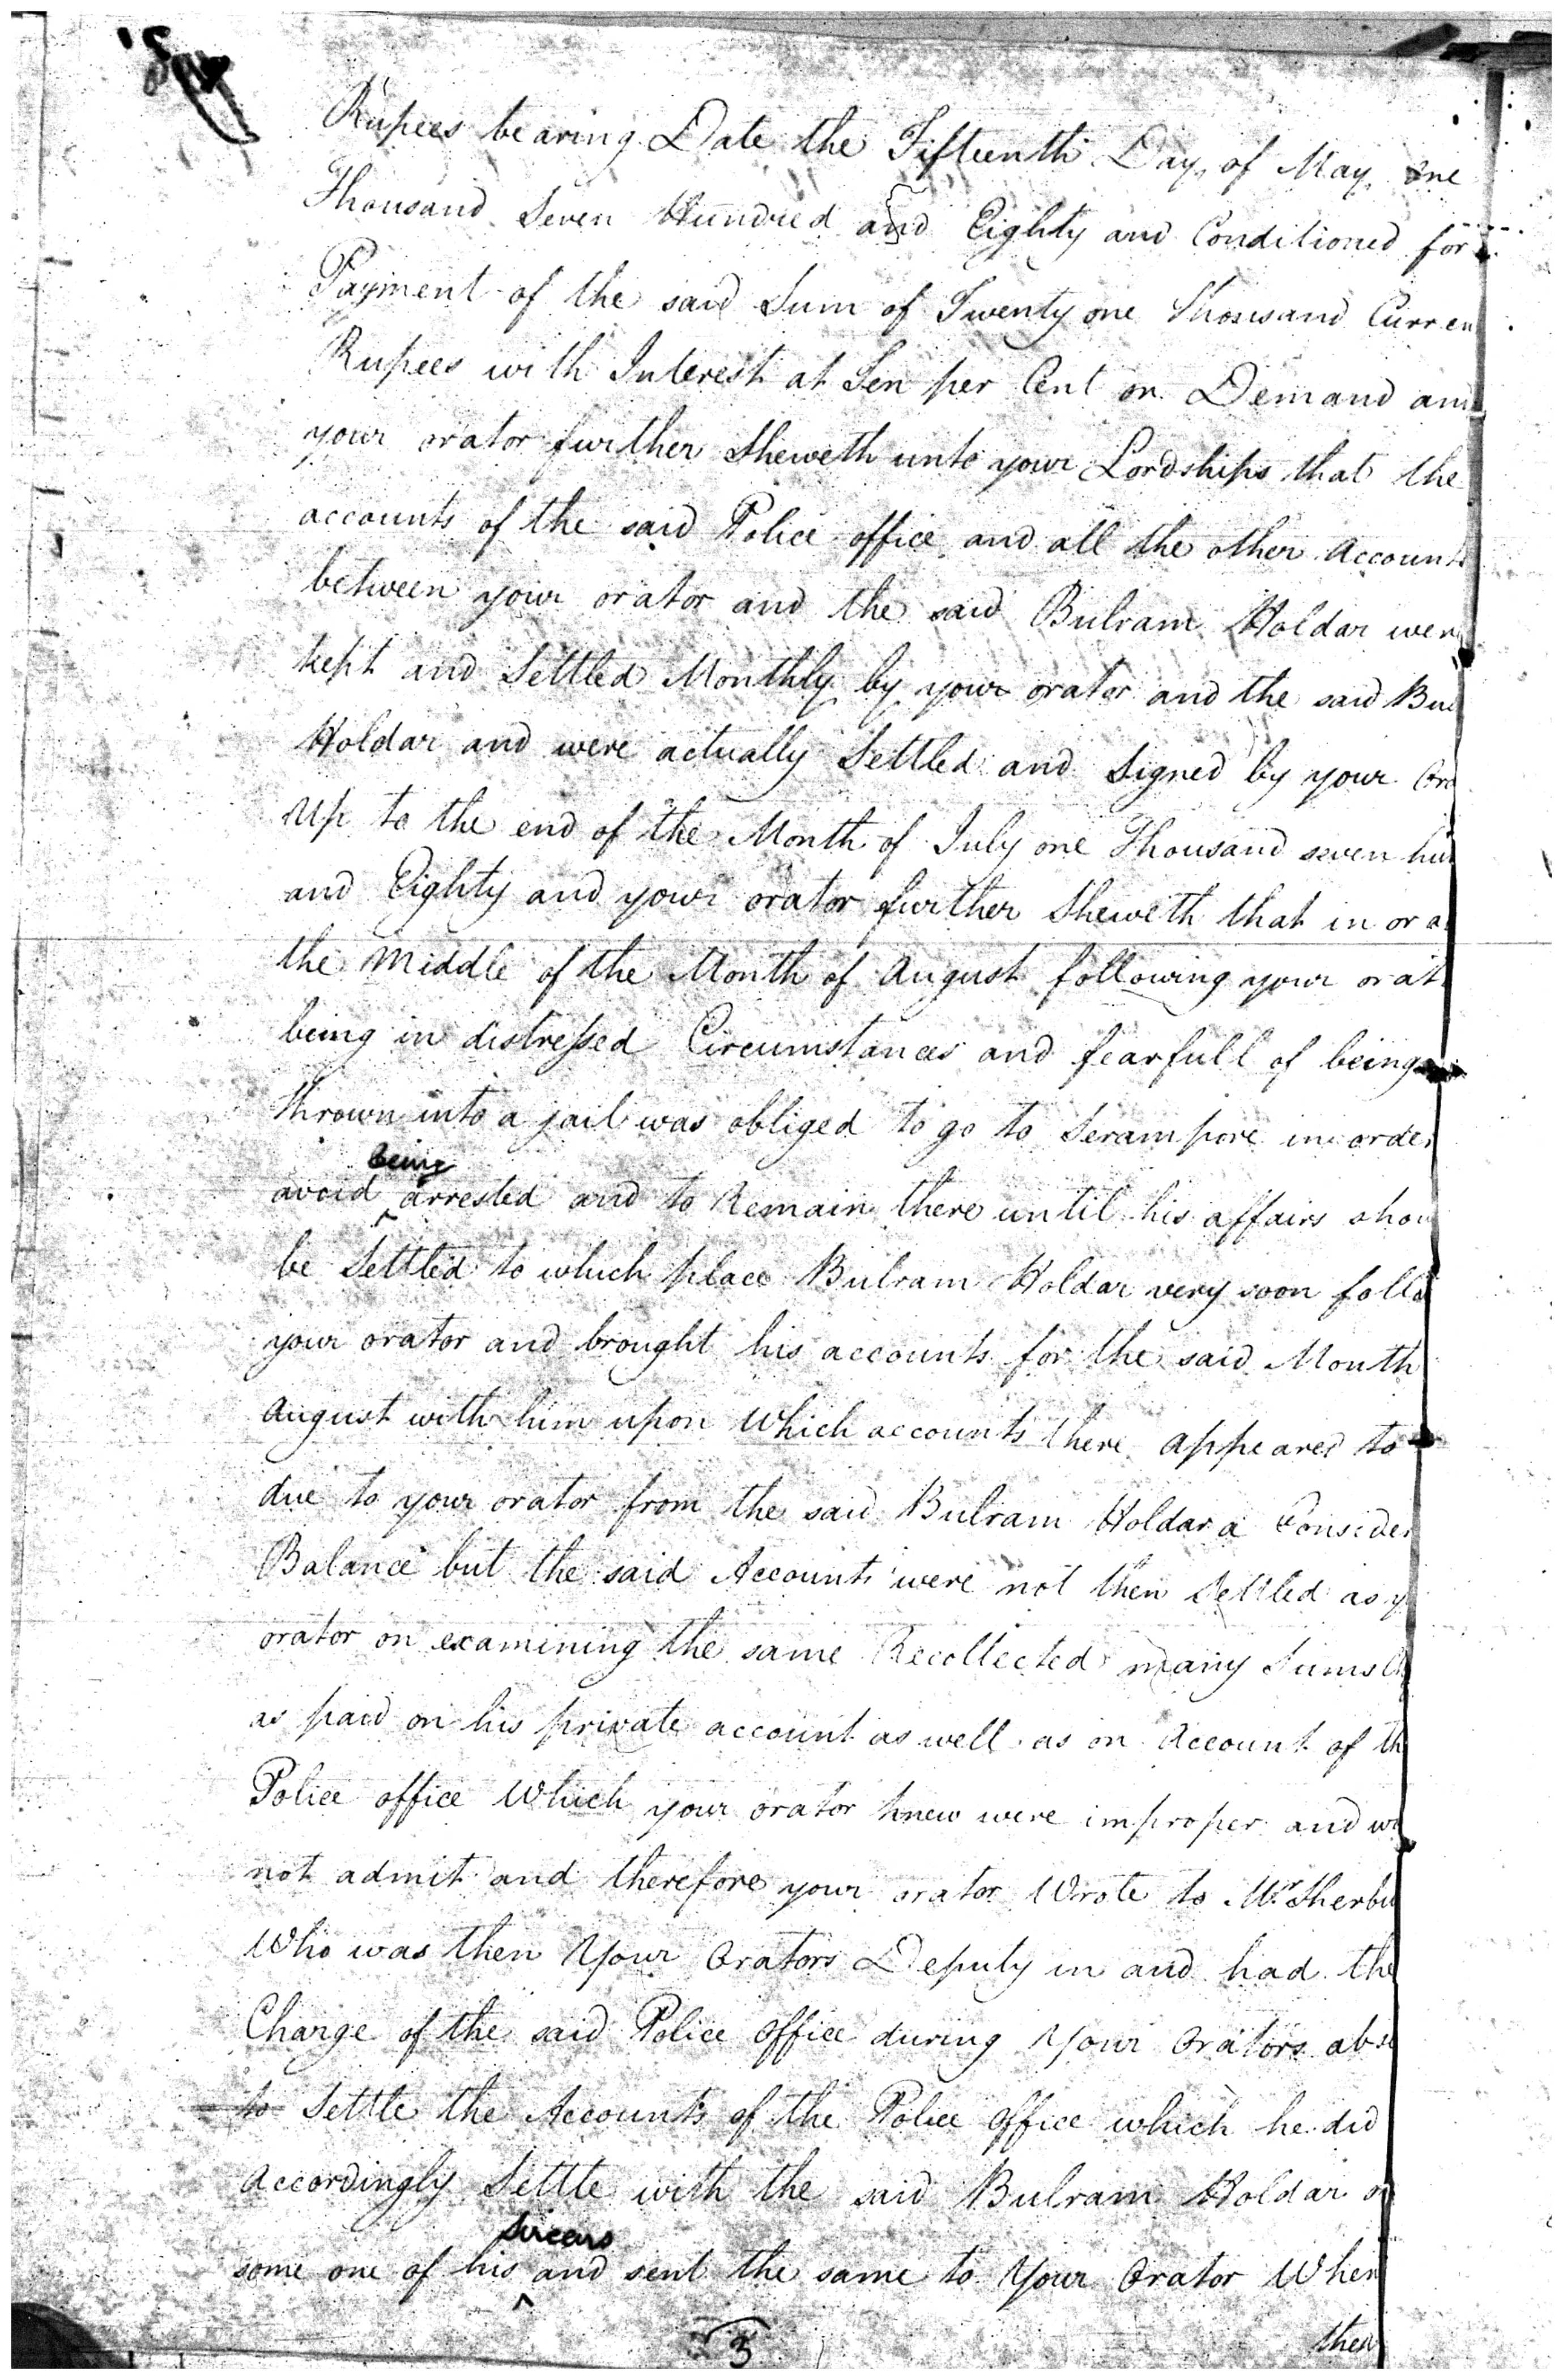 Rupees bearing Date the Fifteenth Day of May one
Thousand Seven Hundred and Eighty and Conditioned for
Payment of the said Sum of Twenty one Thousand Curren
Rupees with Interest at Ten per Cent on Demand and
your orator further Sheweth unto your Lordships that the
accounts of the said Police office and all the other Accounts
between your orator and the said Bulram Holdar wer
kept and Settled Monthly by your orator and the said Bul
Holdar and were actually Settled and Signed by your Ora
Up to the end of the Month of July one Thousand seven hun
and Eighty and your orator further Sheweth that in or a
the Middle of the Month of August following your orat
being in distressed Circumstances and fearfull of being
thrown into a jail was obliged to go to Serampore in order
being
avoid arrested and to Remain there until his affairs shou
be Settled to which place Bulram Holdar very soon follo
your orator and brought his accounts for the said Month
August with him upon Which accounts there appeared to
due to your orator from the said Bulram Holdar a Consider
Balance but the said Accounts were not then Settled as y
orator on examining the same Recollected many Sums
as paid on his private account as well as on Account of th
Police office Which your orator knew were improper and wo
not admit and therefore your orator Wrote to Mr Sherbu
Who was then Your Orators Deputy in and had the
Charge of the said Police Office during Your Orators abse
to Settle the Accounts of the Police Office which he did
accordingly Settle with the said Bulram Holdar o
Sircars
some one of his and sent the same to Your Orator When
3
then